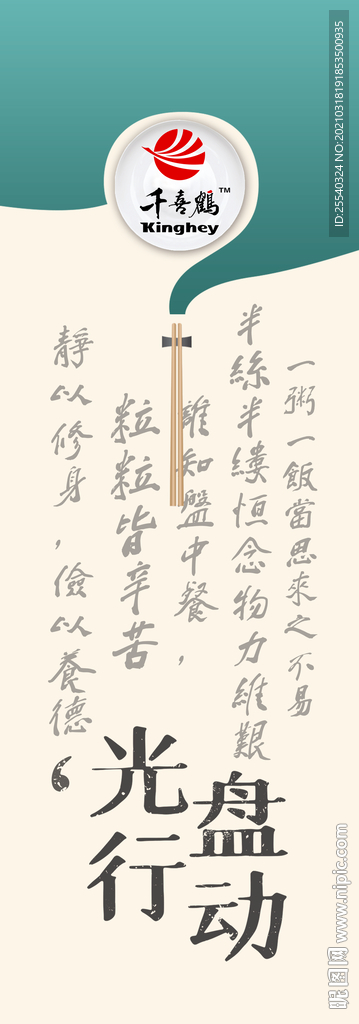 千喜鹤™
Kinghey
一粥一飯當思來之不易
半絲半縷恒念物力維艱
誰知盤中餐，
粒粒皆辛苦
靜以修身，儉以養德
光盘
行动
ID:25540324 NO:20210318191853500935
昵图网 www.nipic.com